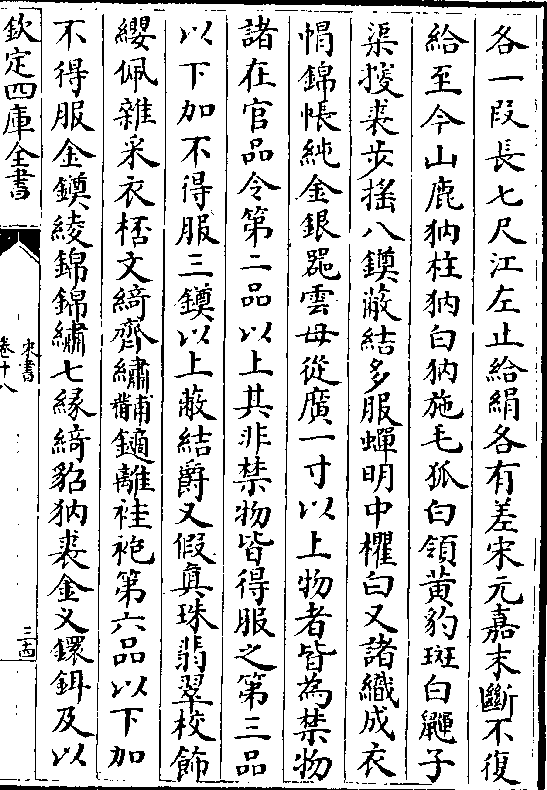 各一段長七尺江左止給絹各有差宋元嘉末斷不復
給至今山鹿豽柱豽白豽施毛狐白領黄豹斑白鼲子
渠搜裘步摇八鏌蔽結多服蟬明中櫂白又諸織成衣
㡌錦帳純金銀器雲母從廣一寸以上物者皆為禁物
諸在官品令第二品以上其非禁物皆得服之第三品
以下加不得服三鏌以上蔽結爵叉假真珠翡翠校飾
纓佩雜采衣桮文綺齊繡黼鏑離袿袍第六品以下加
不得服金鏌綾錦錦繡七緣綺貂豽裘金叉鐶鉺及以
欽定四庫全書
宋書
卷十八
三十四